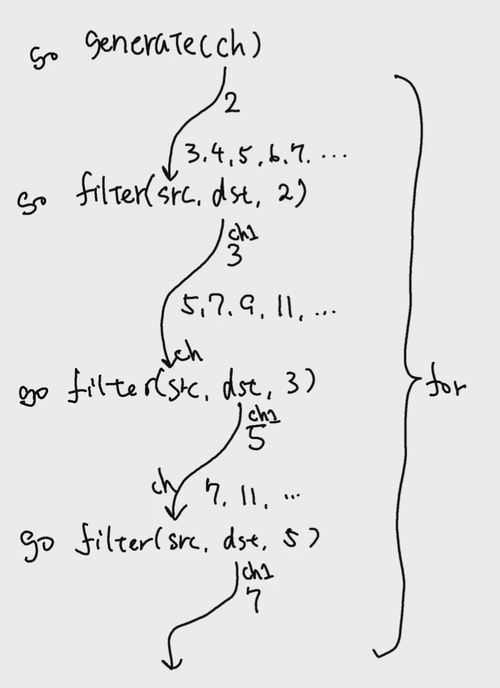 go generate(ch)
2
3,4,5,6,7,...
go filter(src, dst, 2)
ch1
3
5,7,9,11,...
ch
go filter(src, dst, 3)
for
ch1
5
ch
7,11,...
go filter(src, dst, 5)
ch1
7